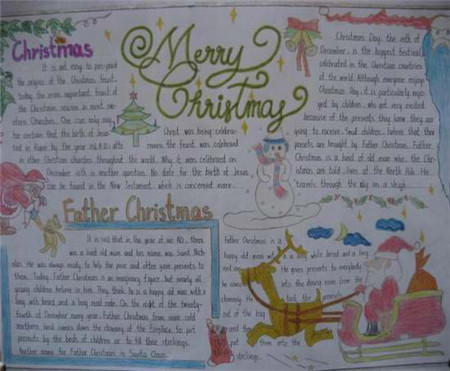 Christmas
It is not easy to
the origins of the Christmas feast
today the most important feast of
the Christmas season in most
Churches. One can only say
for certain that the birth of Jesus
in Rome by the year
in other Christian churches throughout the world. Why it was celebrated on
December 25th is another question. No date for the birth of Jesus
can be found in the New Testament, which is concerned more
Merry
Christmas
Christ was being celebra-
the feast was celebrated
Christmas Day, the 25th of
December, is the biggest festival
celebrated in the Christian countries
of the world. Although everyone enjoys
Christmas Day, it is particularly enjoyed
by children, who get very excited
because of the presents they know they are
going to receive. Small children believe that their
presents are brought by Father Christmas. Father
Christmas is a kind of old man who, the
are told, lives at the North Pole. He
travels through the sky on a sleigh
Father Christmas
It is said that in the year of
was a kind old man and his name was Saint Nich-
olas. He was always ready to help the poor and often gave presents to
them. Today, Father Christmas is an imaginary figure, but nearly all
young children believe in him. They think he is a happy old man with a
long white beard and a long red robe. On the night of the twenty-
fourth of December every year, Father Christmas from some cold
northern land comes down the chimney of the fireplace to put
presents by the beds of children or to fill their stockings.
Another name for Father Christmas is Santa Claus.
Father Christmas is a
happy old man with a long white beard and a long
red He gives presents to everybody
he comes down the
chimney
the
of the bed
and
put them into the
stockings.